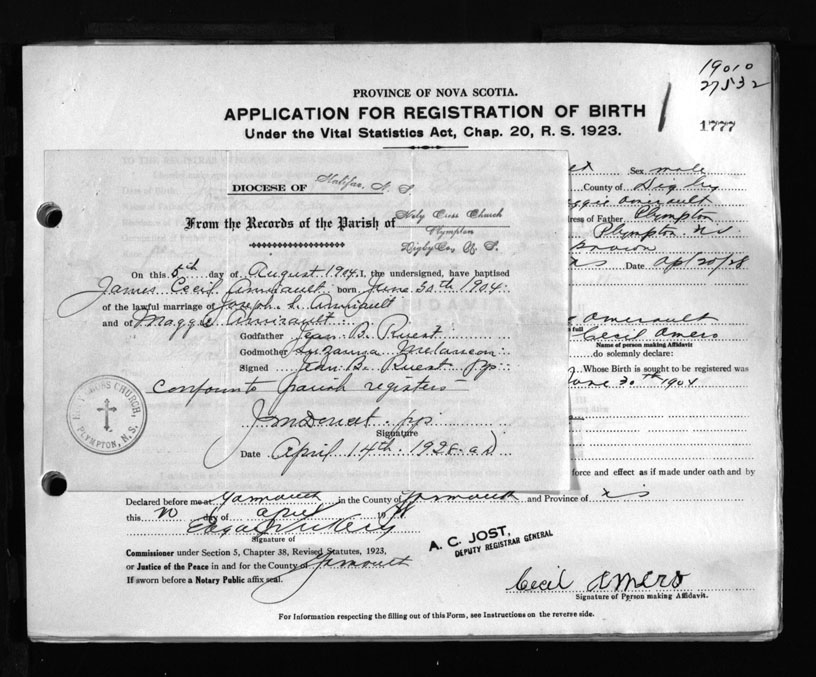 19010
27532
PROVINCE OF NOVA SCOTIA.
APPLICATION FOR REGISTRATION OF BIRTH
1777
Under the Vital Statistics Act, Chap. 20, R. S. 1923.
Sex male
County of Digby
Maggie Amerault
ress of Father Plympton
Plympton NS
Brown
Date Apl 20/28
Amerault
full Cecil Amero
Name of person making Affidavit
do solemnly declare:
Whose Birth is sought to be registered was
June 30th 1904
force and effect as if made under oath and by
DIOCESE OF Halifax, N. S.
From the Records of the Parish of Holy Cross Church
Plympton
Digby Co. N. S.
On this 5th day of August 1904 I, the undersigned, have baptised
James Cecil Amirault born June 30th 1904
of the lawful marriage of Joseph L. Amirault
and of Maggie Amirault
Godfather Jean B. Ruest
Godmother Suzanna Melancon
Signed Jean B. Ruest pp
Conform to parish registers
Signature
Date April 14th 1928 A D
HOLY CROSS CHURCH,
PLYMPTON, N.S.
Declared before me at Yarmouth in the County of Yarmouth and Province of N S
this 20 day of April 1928
Signature of
Commissioner under Section 5, Chapter 38, Revised Statutes, 1923,
or Justice of the Peace in and for the County of Yarmouth
If sworn before a Notary Public affix seal.
A. C. JOST,
DEPUTY REGISTRAR GENERAL
Cecil Amero
Signature of Person making Affidavit.
For Information respecting the filling out of this Form, see Instructions on the reverse side.